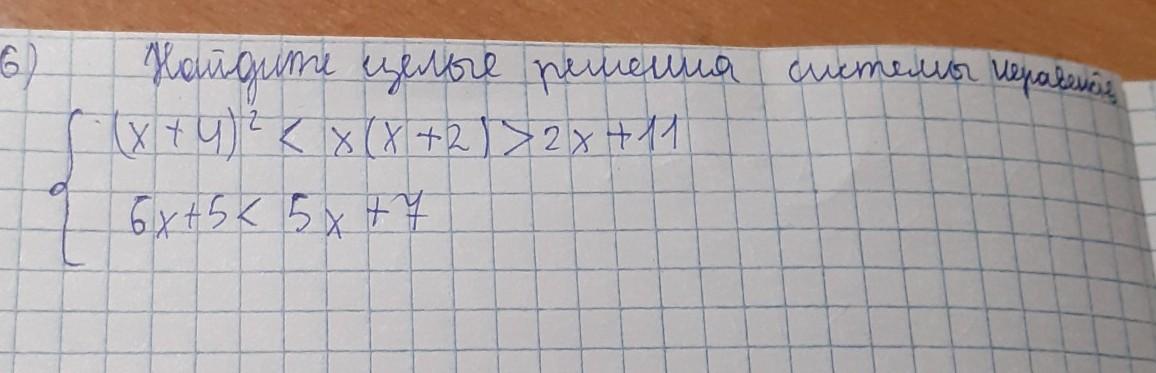 6) Найдите целые решения системы неравенств
(x+4)² < x(x+2) > 2x+11
6x+5< 5x+7